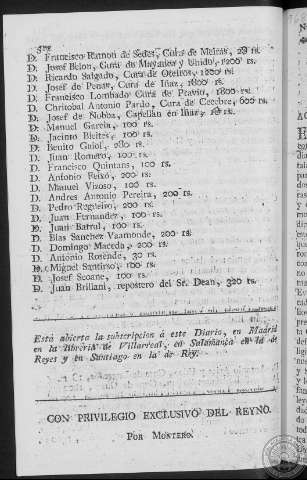 D. Francisco Ramon de Seder, Cura de Meiras, 20 rs.
D. Josef Belon, Cura de Mayanca y Unido, 1200 rs.
D. Ricardo Salgado, Cura de Oteiros, 1200 rs.
D. Josef de Penas, Cura de Iñas, 1800 rs.
D. Francisco Lombado Cura de Pravio, 1800 rs.
D. Christobal Antonio Pardo, Cura de Cecebre, 600 rs.
D. Josef de Nobba, Capellan en Iñas, rs.
D. Manuel Garcia, 100 rs.
D. Jacinto Bieites, 100 rs.
D. Benito Guiol, 280 rs.
D. Juan Romero, 100 rs.
D. Francisco Quintans, 100 rs.
D. Antonio Feixó, 200 rs.
D. Manuel Vizoso, 100 rs.
D. Andres Antonio Pereira, 200 rs.
D. Pedro Regueiro, 200 rs.
D. Juan Fernandez, 100 rs.
D. Juan Batrul, 100 rs.
D. Blas Sanchez Vaamonde, 200 rs.
D. Domingo Maceda, 200 rs.
D. Antonio Rosende, 30 rs.
D. Miguel Santirso, 100 rs.
D. Josef Seoane, 100 rs.
D. Juan Brillani, repostero del Sr. Dean, 320 rs.
Está abierta la subscripcion á este Diario, en Madrid
en la libreria de Villarreal, en Salamanca en la de
Reyes y en Santiago en la de Rey.
CON PRIVILEGIO EXCLUSIVO DEL REYNO.
POR MONTERO.